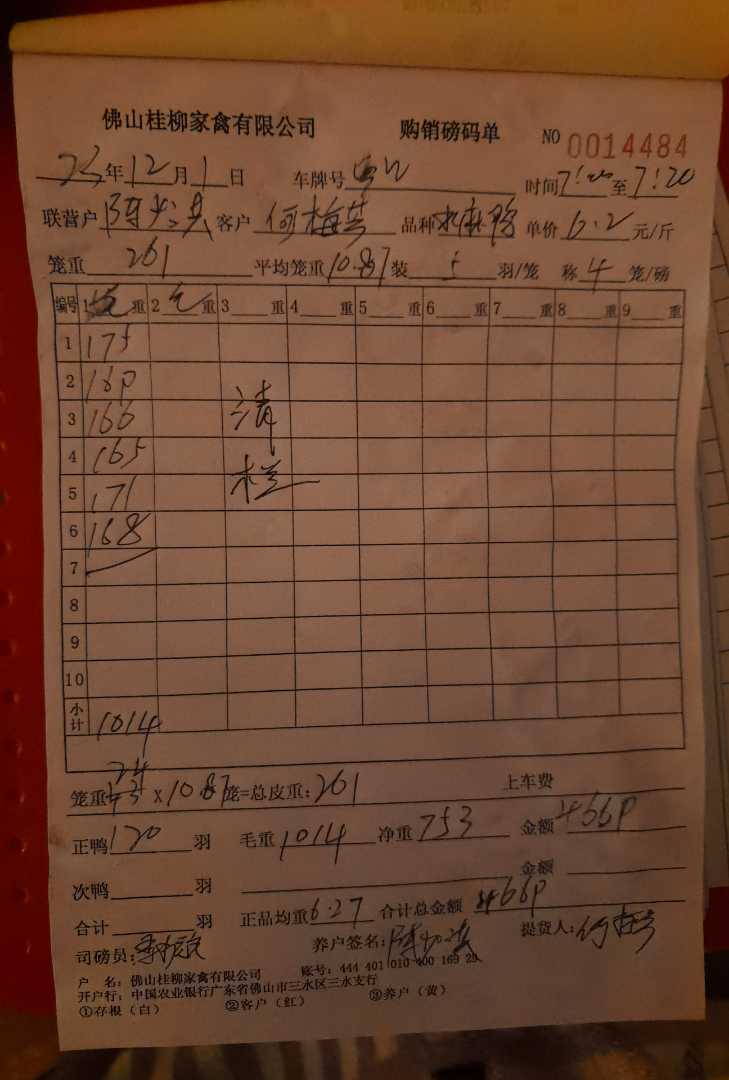 佛山桂柳家禽有限公司 购销磅码单 NO 0014484
23年12月1日 车牌号 时间7:00至7:20
联营户 客户 何梅英 品种水麻鸭 单价6.2元/斤
笼重261 平均笼重10.87装5羽/笼 称4笼/磅
编号 1毛重 2毛重 3重 4重 5重 6重 7重 8重 9重
1 175
2 169
3 166 清
4 165
5 171 栏
6 168
7
8
9
10
小计 1014
笼重24×10.87笼=总皮重:261 上车费
正鸭120羽 毛重1014 净重753 金额4669
次鸭羽 金额
合计羽 正品均重6.27 合计总金额4669
司磅员: 养户签名: 提货人:何梅英
户 名:佛山桂柳家禽有限公司 账号:444 401 010 400 169 29
开户行:中国农业银行广东省佛山市三水区三水支行
①存根(白) ②客户(红) ③养户(黄)